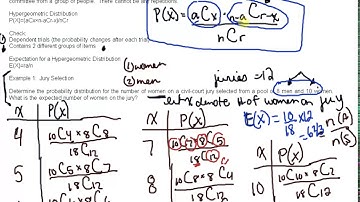 committee from a group of people. There cannot be any repetitions.
Hypergeometric Distribution
P(X)=(aCx×n-aCr-x)/nCr
P(X) = aCx · n-aCr-x
nCr
Check
Dependent trials (the probability changes after each trial)
Contains 2 different groups of items
Expectation for a Hypergeometric Distribution
E(X)=ra/n
① women
② men
juries = 12
Example 1: Jury Selection
Determine the probability distribution for the number of women on a civil-court jury selected from a pool of 8 men and 10 women.
What is the expected number of women on the jury?
let x denote # of women on jury
E(X) = 10 x12
18
x P(X)
4 10C4 x 8C8
18C12
5 10C5 x 8C7
18C12
x P(X)
7 10C7 x 8C5
18C12
8 10C8 x 8C4
18C12
x P(X)
10 10C10 x 8C2
18C12
n(A)
n(S)